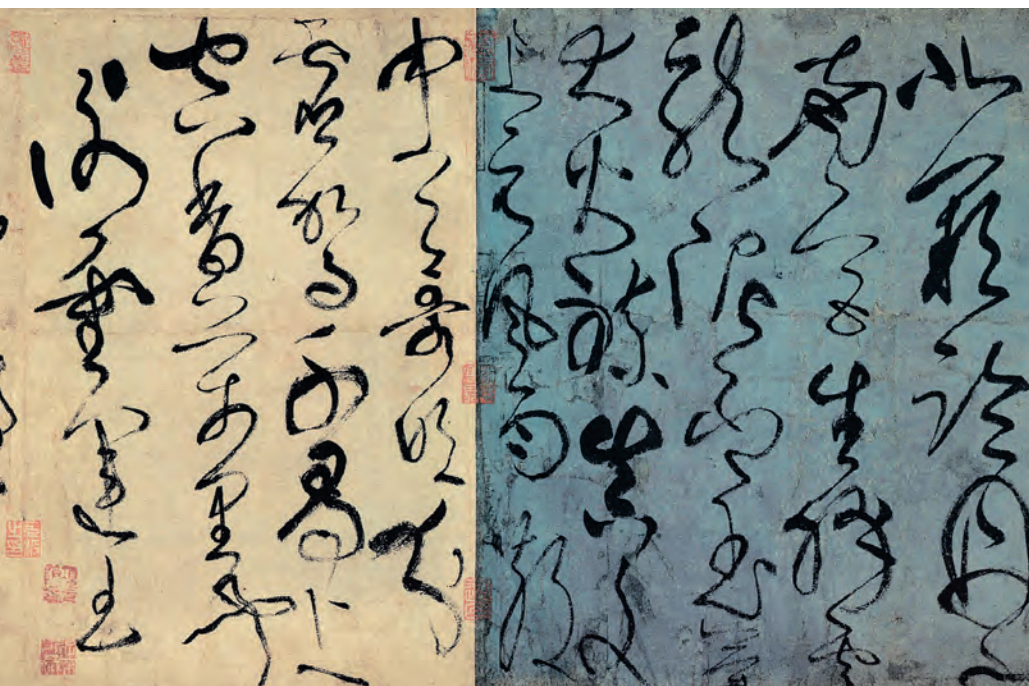 北闕臨丹水
南宮生絳雲
龍泥印玉簡
大火練真文
上元風雨散
中天歌吹分
靈駕千尋上
空香萬里聞
謝靈運王